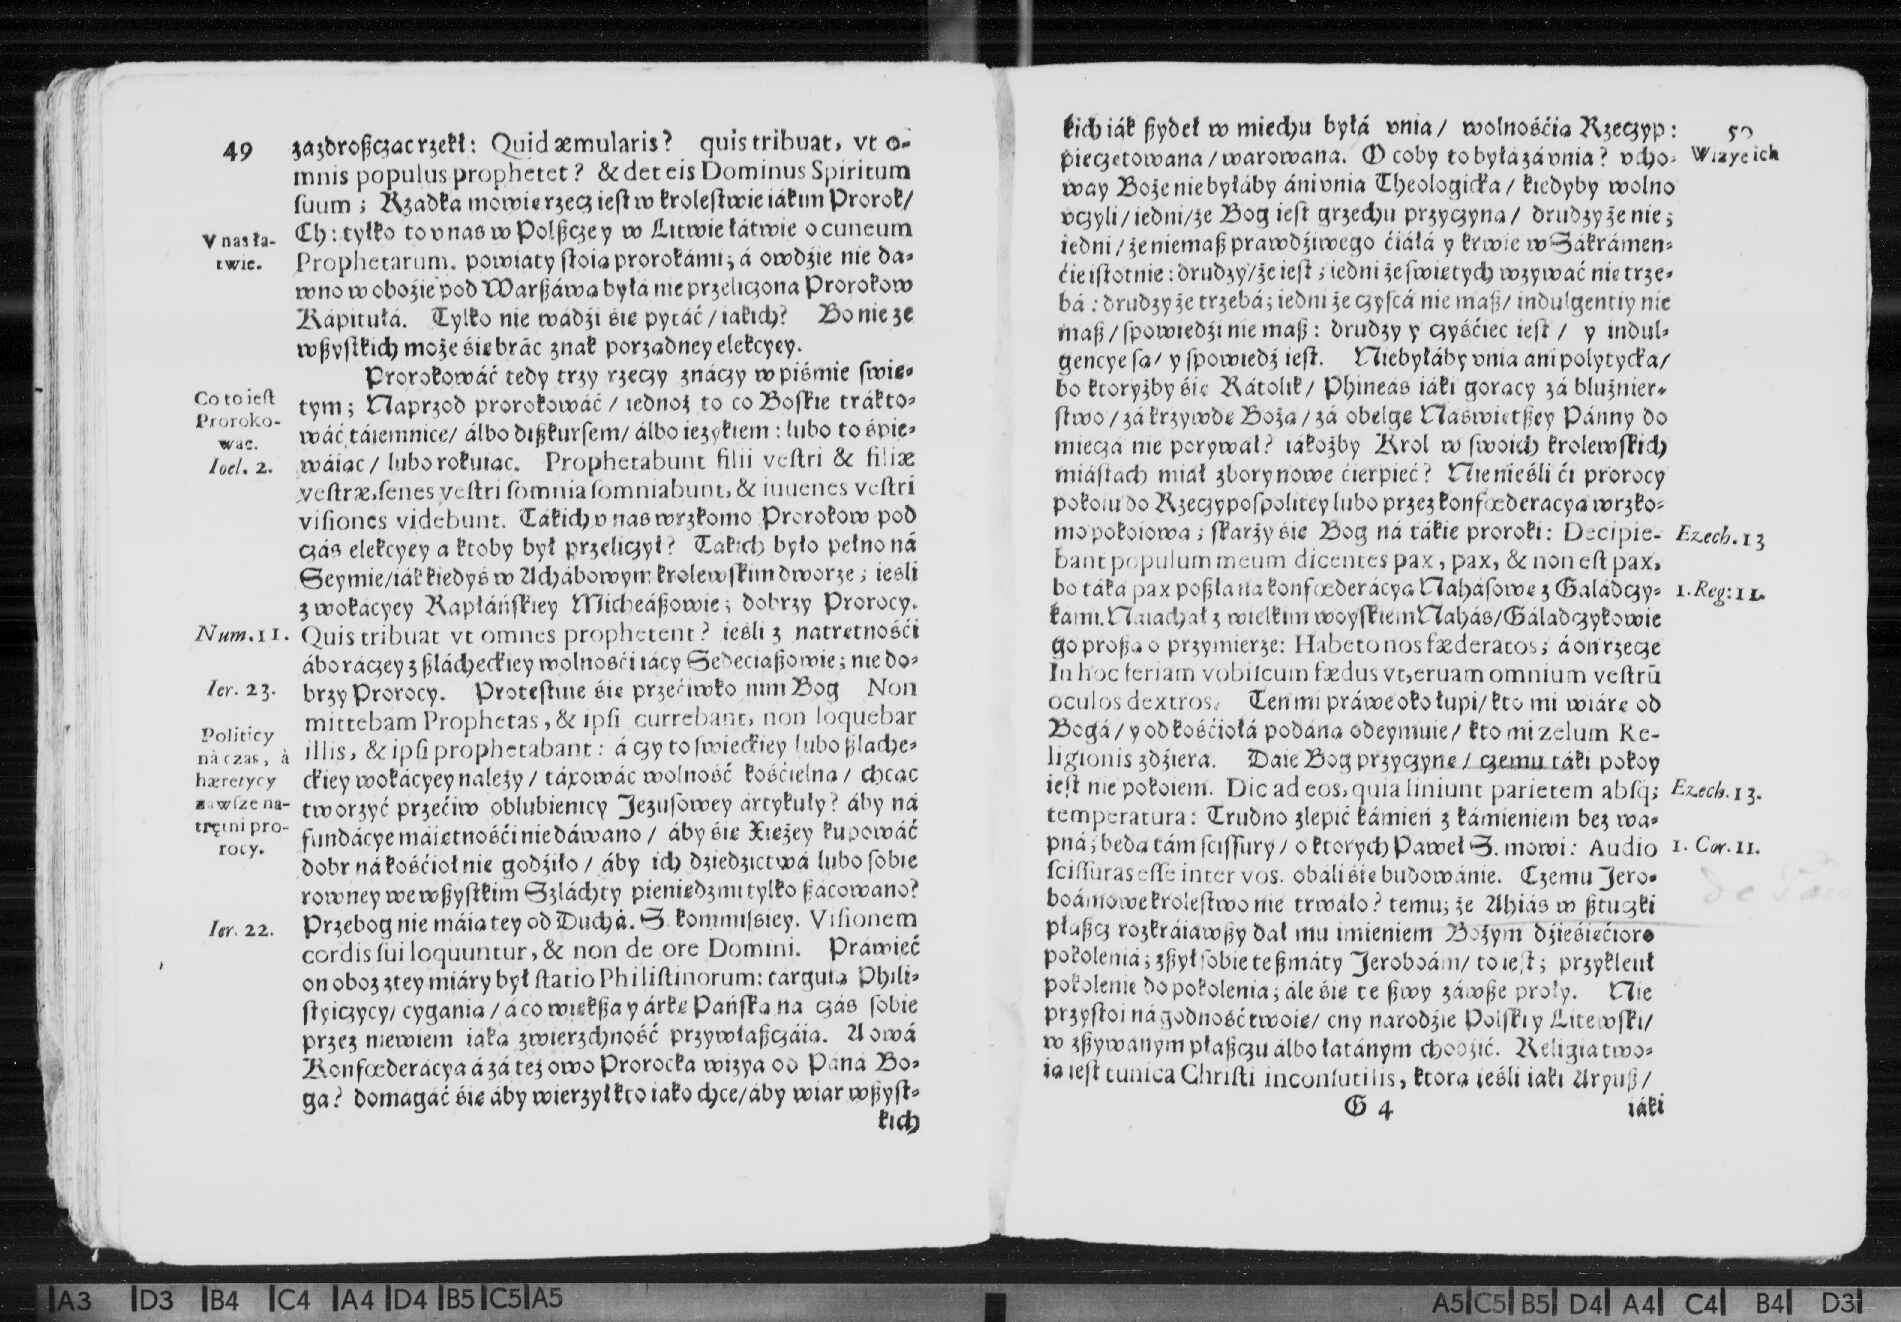 49
zazdroßcząc rzekł: Quid æmularis? quis tribuat, vt o-
mnis populus prophetet? & det eis Dominus Spiritum
suum; Rzadka mowię rzecz iest w krolestwie iákim Prorok/
Ch: tylko to v nas w Polßcze y w Litwie łátwie o cuneum
Prophetarum. powiaty stoią prorokámi; á owdźie nie da-
wno w oboźie pod Warßáwą byłá nie przeliczona Prorokow
Kápitułá. Tylko nie wádźi się pytáć/ iakich? Bo nie ze
wßystkich może się bráć znak porządney elekcyey.
V nas ła-
twie.
Prorokowáć tedy trzy rzeczy znáczy w piśmie swię-
tym; Naprzod prorokowáć/ iednoż to co Boskie trákto-
wáć táiemnice/ álbo dißkursem/ álbo ięzykiem: lubo to śpie-
wáiąc/ lubo rokuiąc. Prophetabunt filii vestri & filiæ
vestræ, senes vestri somnia somniabunt, & iuuenes vestri
visiones videbunt. Tákich v nas wrzkomo Prorokow pod
czás elekcyey a ktoby był przeliczył? Takich było pełno ná
Seymie/ iák kiedyś w Achábowym krolewskim dworze; iesli
z wokácyey Kapłáńskiey Micheáßowie; dobrzy Prorocy.
Quis tribuat vt omnes prophetent? ieśli z natrętnośći
ábo ráczey z ßlácheckiey wolnośći iácy Sedeciaßowie; nie do-
brzy Prorocy. Protestuie się przećiwko nim Bog Non
mittebam Prophetas, & ipsi currebant, non loquebar
illis, & ipsi prophetabant: á czy to swieckiey lubo ßlache-
ckiey wokácyey należy/ táxowác wolność kośćielną/ chcąc
tworzyć przećiw oblubienicy Jezusowey artykuły? áby ná
fundácye máiętnośći nie dáwano/ áby się Xiężey kupowáć
dobr ná kośćioł nie godźiło/ áby ich dziedzictwá lubo sobie
rowney we wßystkim Szláchty pieniędzmi tylko ßácowano?
Przebog nie máią tey od Duchá. S. kommissiey. Visionem
cordis sui loquuntur, & non de ore Domini. Práwieć
on oboz z tey miáry był statio Philistinorum: targuią Phili-
styiczycy/ cygania/ á co większa y árkę Pańską na czás sobie
przez niewiem iaką zwierzchność przywłaßczáią. A owá
Konfœderácya á zá też owo Prorocka wizya od Páná Bo-
ga? domagáć się áby wierzył kto iako chce/ áby wiar wßyst-
kich
Co to iest
Proroko-
wac.
Ioel. 2.
Num. 11.
Ier. 23.
Politicy
nà czas, à
hæretycy
zawsze na-
trętni pro-
rocy.
Ier. 22.
50
kich iák ßydeł w miechu byłá vnia/ wolnośćią Rzeczyp:
pieczętowana/ warowana. O coby to była zá vnia? vcho-
way Boże nie byłáby áni vnia Theologicka/ kiedyby wolno
vczyli/ iedni/ że Bog iest grzechu przyczyną/ drudzy że nie;
iedni/ że niemaß prawdźiwego ćiáłá y krwie w Sákrámen-
ćie istotnie: drudzy/ że iest; iedni że swiętych wzywáć nie trze-
bá: drudzy że trzebá; iedni że czyscá nie maß/ indulgentiy nie
maß/ spowiedźi nie maß: drudzy y czyśćiec iest/ y indul-
gencye są/ y spowiedź iest. Niebyłáby vnia ani polytycka/
bo ktoryżby się Kátolik/ Phineás iáki gorący zá bluźnier-
stwo/ zá krzywdę Bożą/ zá obelgę Naświętßey Pánny do
mieczá nie porywał? iákożby Krol w swoich krolewskich
miástach miał zbory nowe ćierpieć? Nie nieśli ći prorocy
pokoiu do Rzeczypospolitey lubo przez konfœderacyą wrzko-
mo pokoiową; skarży się Bog ná tákie proroki: Decipie-
bant populum meum dicentes pax, pax, & non est pax,
bo táka pax poßła na konfœderácya Nahásowe z Galádczy-
kámi. Naiachał z wielkim woyskiem Nahás/ Gáladczykowie
go proßą o przymierze: Habeto nos fæderatos; á on rzecze
In hoc feriam vobiscum fædus vt, eruam omnium vestrū
oculos dextros. Ten mi práwe oko łupi/ kto mi wiárę od
Bogá/ y od kośćiołá podáną odeymuie/ kto mi zelum Re-
ligionis zdźiera. Daie Bog przyczynę/ czemu táki pokoy
iest nie pokoiem. Dic ad eos, quia liniunt parietem absq;
temperatura: Trudno zlepić kámień z kámieniem bez wa-
pná; będą tám scissury/ o ktorych Paweł S. mowi: Audio
scissuras esse inter vos. obáli się budowánie. Czemu Jero-
boámowe krolestwo nie trwáło? temu; że Ahiás w ßtuczki
płaßcz rozkráiawßy dał mu imieniem Bożym dźieśięćioro
pokolenia; zßył sobie te ßmáty Jeroboám/ to iest; przykleił
pokolenie do pokolenia; ále się te ßwy záwße proły. Nie
przystoi ná godność twoię/ cny narodźie Polski y Litewski/
w zßywanym płaßczu álbo łatánym chodźić. Religia two-
ia iest tunica Christi inconsutilis, ktorą ieśli iaki Aryuß/
G 4 iáki
Wizye ich
Ezech. 13
1. Reg: 11.
Ezech. 13.
1. Cor. 11.
A3 D3 B4 C4 A4 D4 B5 C5 A5
A5 C5 B5 D4 A4 C4 B4 D3